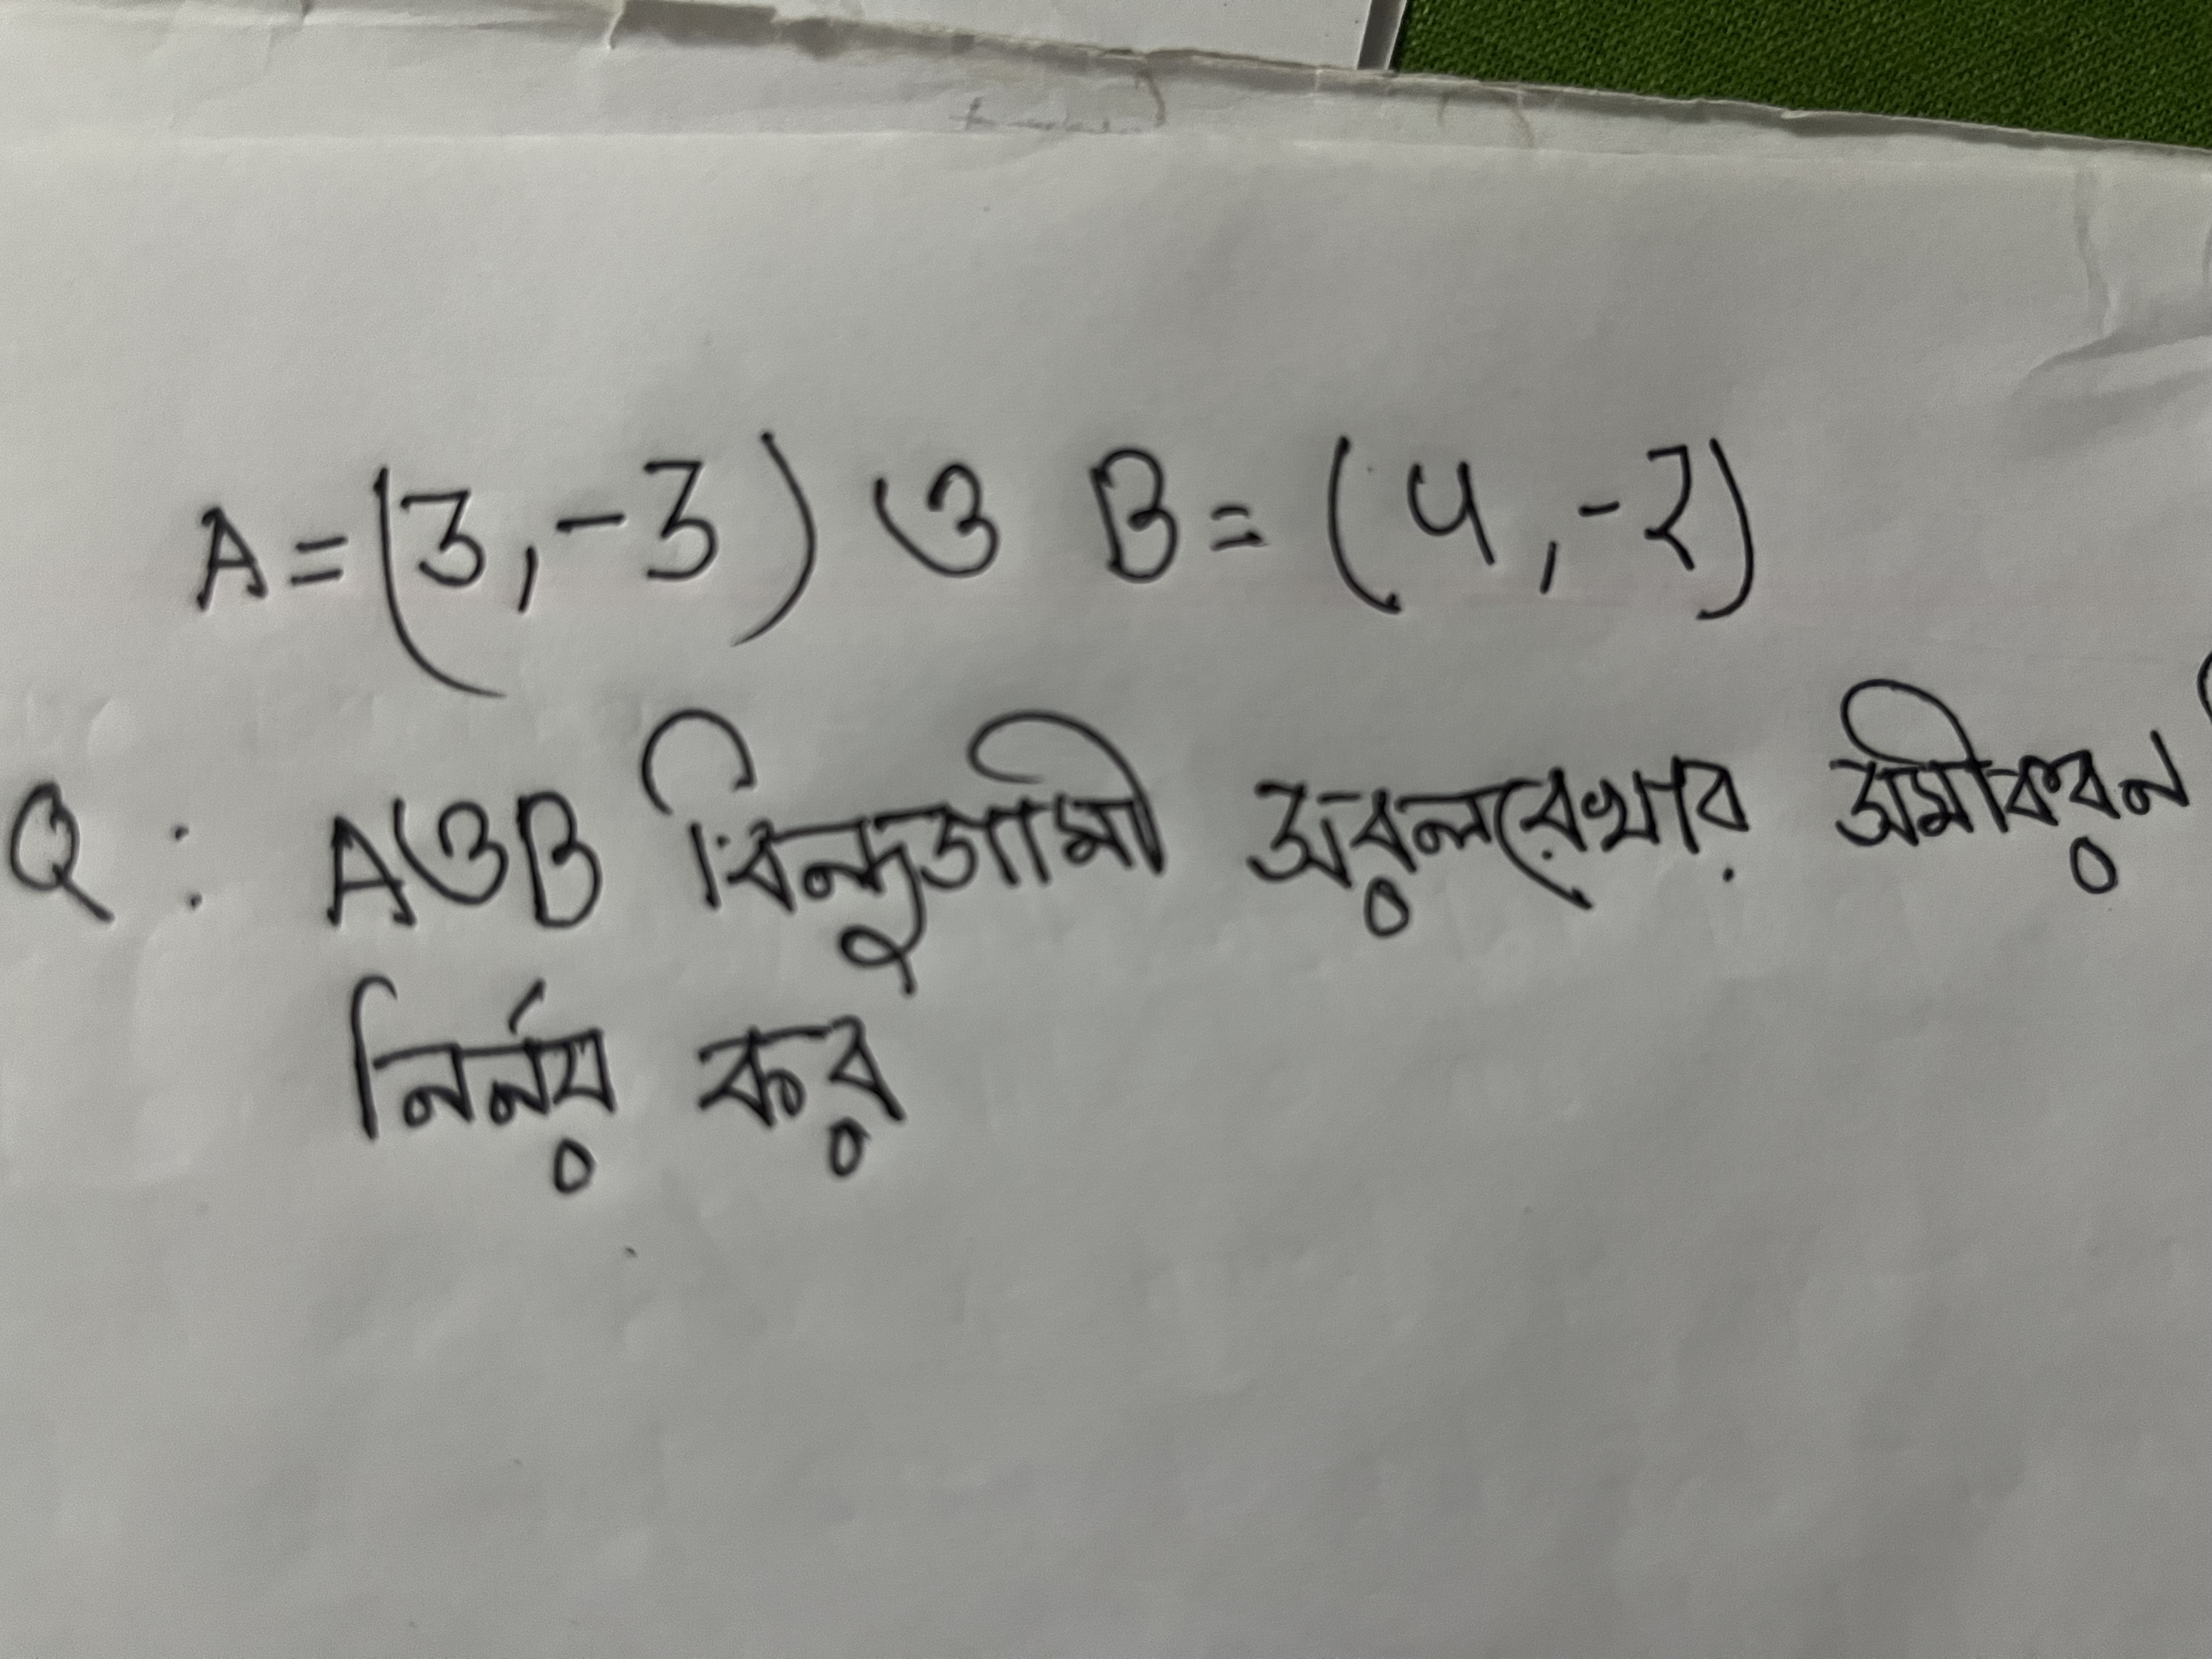 A=(3,-3) ও B=(4,-2)
Q: AওB বিন্দুগামী সরলরেখার সমীকরন
নির্নয় কর